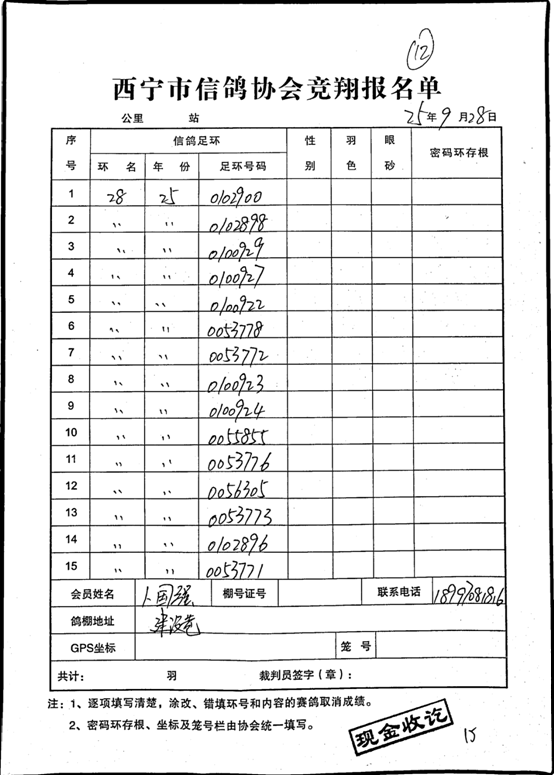 ⑫
西宁市信鸽协会竞翔报名单
公里 站 25年9月28日
序号 信鸽足环 性别 羽色 眼砂 密码环存根
环名 年份 足环号码
1 28 25 0102900
2 〃 〃 0102898
3 〃 〃 0100929
4 〃 〃 0100927
5 〃 〃 0100922
6 〃 〃 0053778
7 〃 〃 0053772
8 〃 〃 0100923
9 〃 〃 0100924
10 〃 〃 0055855
11 〃 〃 0053776
12 〃 〃 0056305
13 〃 〃 0053773
14 〃 〃 0102896
15 〃 〃 0053771
会员姓名 卜国强 棚号证号 联系电话
鸽棚地址
GPS坐标 笼号
共计: 羽 裁判员签字(章):
注:1、逐项填写清楚,涂改、错填环号和内容的赛鸽取消成绩。
2、密码环存根、坐标及笼号栏由协会统一填写。
现金收讫
15